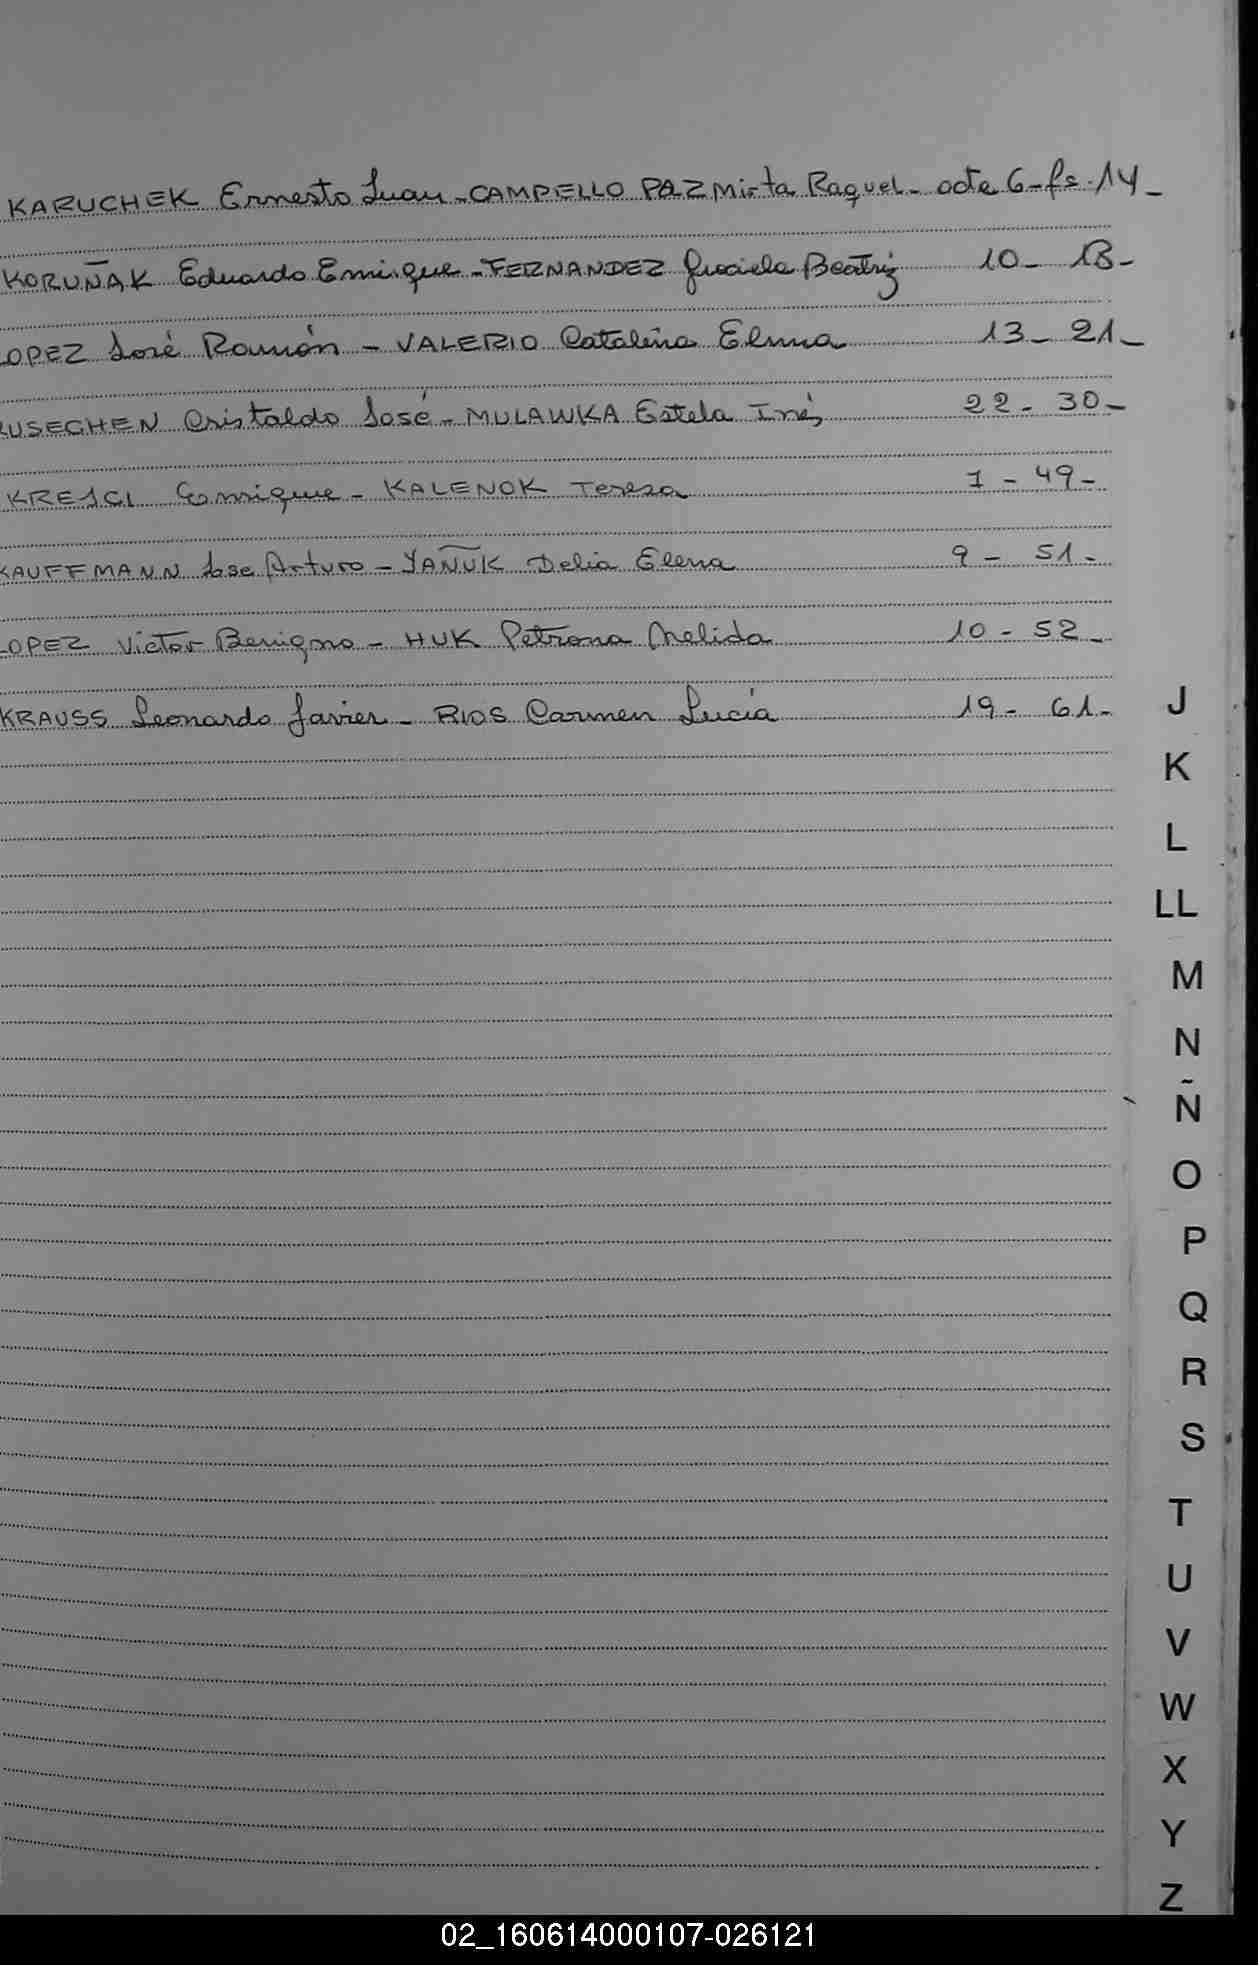 KARUCHEK Ernesto Juan - CAMPELLO PAZ Mirta Raquel - acta 6 - fs. 14 -
KORUÑAK Eduardo Enrique - FERNANDEZ Graciela Beatriz 10 - 18 -
LOPEZ José Ramón - VALERIO Catalina Elma 13 - 21 -
USEGHEN Cristaldo José - MULAWKA Estela Inés 22 - 30 -
KREJCI Enrique - KALENOK Teresa 7 - 49 -
KAUFFMANN Jose Arturo - YAÑUK Delia Elena 9 - 51 -
LOPEZ Victor Benigno - HUK Petrona Melida 10 - 52 -
KRAUSS Leonardo Javier - RIOS Carmen Lucía 19 - 61 -
J
K
L
LL
M
N
Ñ
O
P
Q
R
S
T
U
V
W
X
Y
Z
02_160614000107-026121